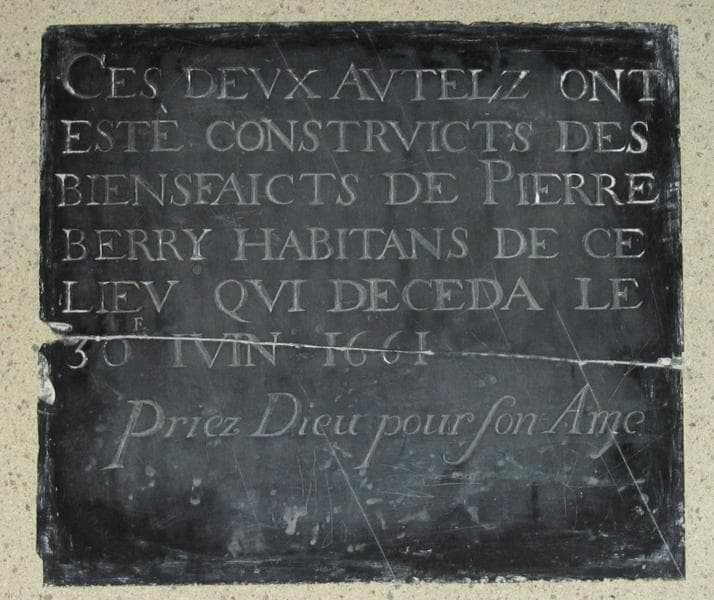 CES DEVX AVTELZ ONT
ESTÈ CONSTRVICTS DES
BIENSFAICTS DE PIERRE
BERRY HABITANS DE CE
LIEV QVI DECEDA LE
30E IVIN 1661
Priez Dieu pour ſon Ame